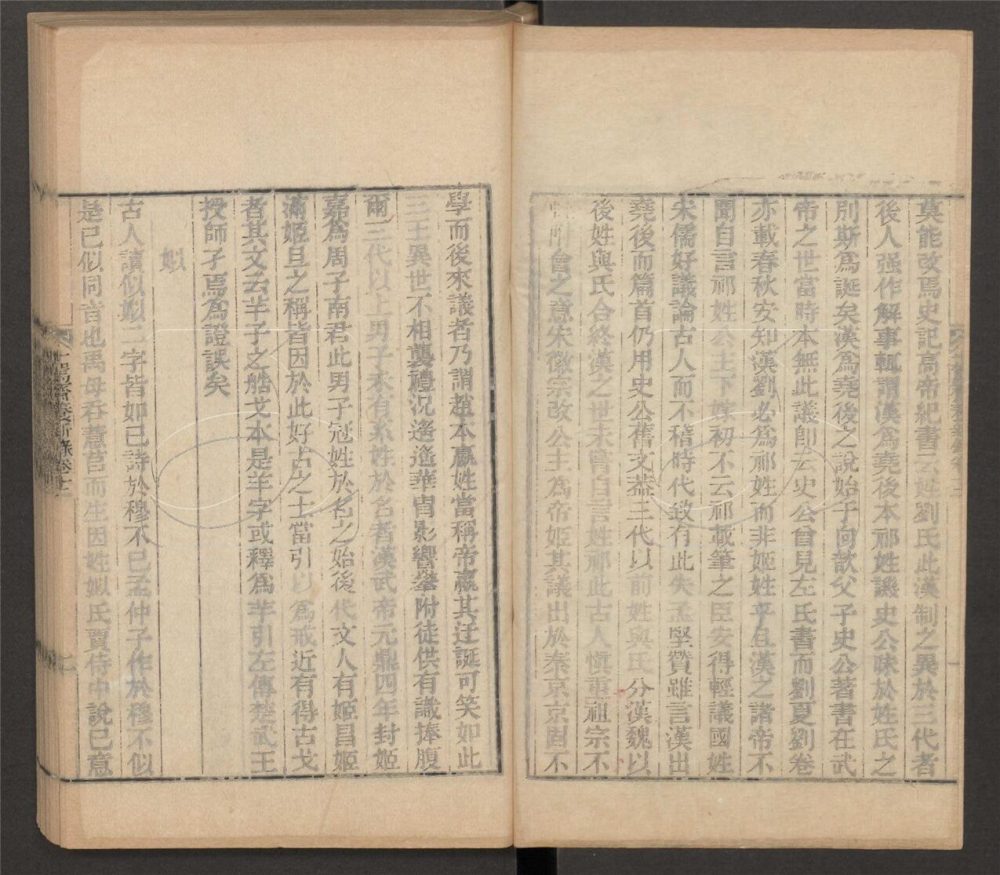 莫能改焉史記高帝紀書云姓劉氏此漢制之異於三代者
後人强作解事輒謂漢為堯後本祁姓譏史公昧於姓氏之
別斯為誕矣漢為堯後之說始于向歆父子史公著書在武
帝之世當時本無此議卽云史公曾見左氏書而劉夏劉卷
亦載春秋安知漢劉必為祁姓而非姬姓乎且漢之諸帝不
聞自言祁姓公主下嫁初不云祁載筆之臣安得輕議國姓
宋儒好議論古人而不稽時代致有此失孟堅贊雖言漢出
堯後而篇首仍用史公舊文蓋三代以前姓與氏分漢魏以
後姓與氏合終漢之世未嘗自言姓祁此古人愼重祖宗不
會之意宋徽宗改公主為帝姬其議出於蔡京京固不
學而後來議者乃謂趙本嬴姓當稱帝嬴其迂誕可笑如此
三王異世不相襲禮況遙遙華胄影響攀附徒供有識捧腹
爾三代以上男子未有系姓於名者漢武帝元鼎四年封姬
嘉為周子南君此男子冠姓於名之始後代文人有姬昌姬
滿姬旦之稱皆因於此好古之士當引以為戒近有得古戈
者其文云羊子之艁戈本是羊字或釋為芈引左傳楚武王
授師孑焉為證誤矣
姒
古人讀似姒二字皆如已詩於穆不已孟仲子作於穆不似
是已似同音也禹母吞薏苡而生因姓姒氏賈侍中說已意
十駕齋養新錄卷十二